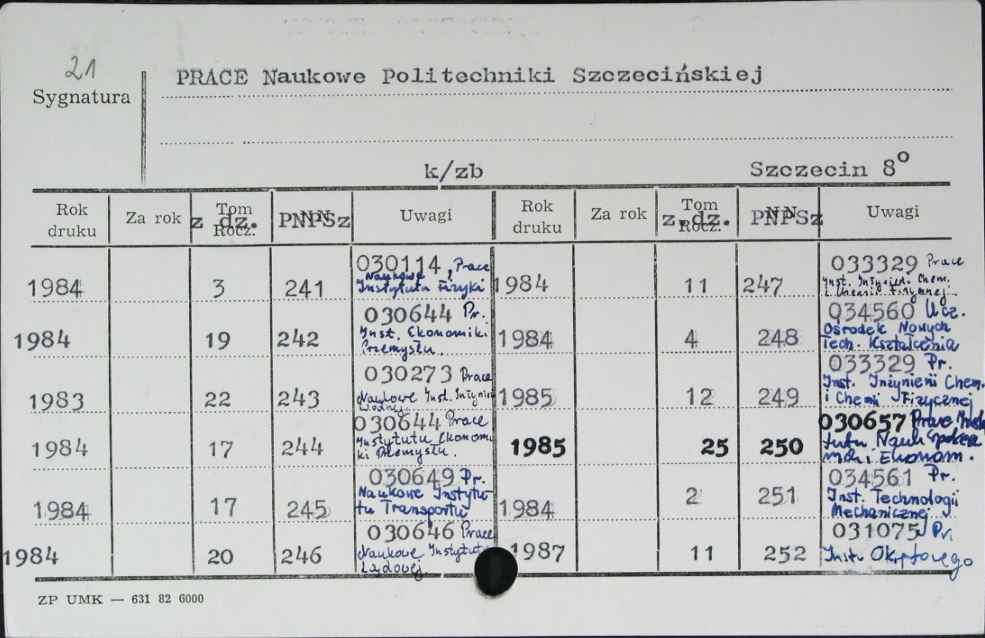 21
Sygnatura
PRACE Naukowe Politechniki Szczecińskiej
k/zb Szczecin 8º
Rok druku Za rok Tom Rocz. z dz. NN PNPSz Uwagi Rok druku Za rok Tom Rocz. z.dz. NN PNPSz Uwagi
1984 3 241 030114, Prace Naukowe Instytutu Fizyki 1984 11 247 033329 Prace Inst. Inżynierii Chem. i Chemii Fizycznej
1984 19 242 030644 Pr. Inst. Ekonomiki Przemysłu. 1984 4 248 034560 Ucz. Ośrodek Nowych Tech. Kształcenia
1983 22 243 030273 Prace Naukowe Inst. Inżynierii Wodnej 1985 12 249 033329 Pr. Inst. Inżynierii Chem. i Chemii Fizycznej
1984 17 244 030644 Prace Instytutu Ekonomiki Przemysłu. 1985 25 250 030657 Prace Instytutu Nauk Społecznych i Ekonom.
1984 17 245 030649 Pr. Naukowe Instytutu Transportu 1984 2 251 034561 Pr. Inst. Technologii Mechanicznej
1984 20 246 030646 Prace Naukowe Instytut Lądowej 1987 11 252 031075 Pr. Inst. Okrętowego
ZP UMK — 631 82 6000